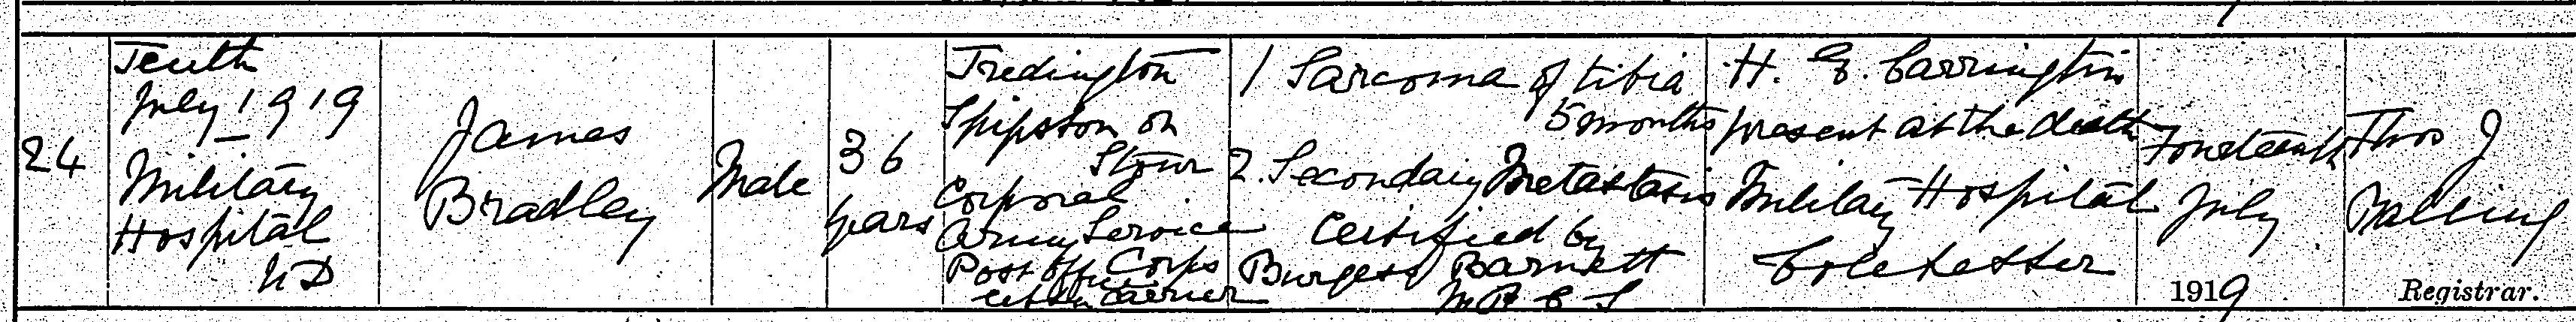 24
Tenth
July 1919
Military
Hospital
U D
James
Bradley
Male
36
years
Tredington
Shipston on
Stour
Corporal
Army Service
Corps
Post Office
Letter Carrier
1 Sarcoma of tibia
5 months
2. Secondary Metastasis
Certified by
Burgess Barnett
M R C S
H. E. Carrington
present at the death
Military Hospital
Colchester
Fourteenth
July
1919
Thos J
Balling
Registrar.